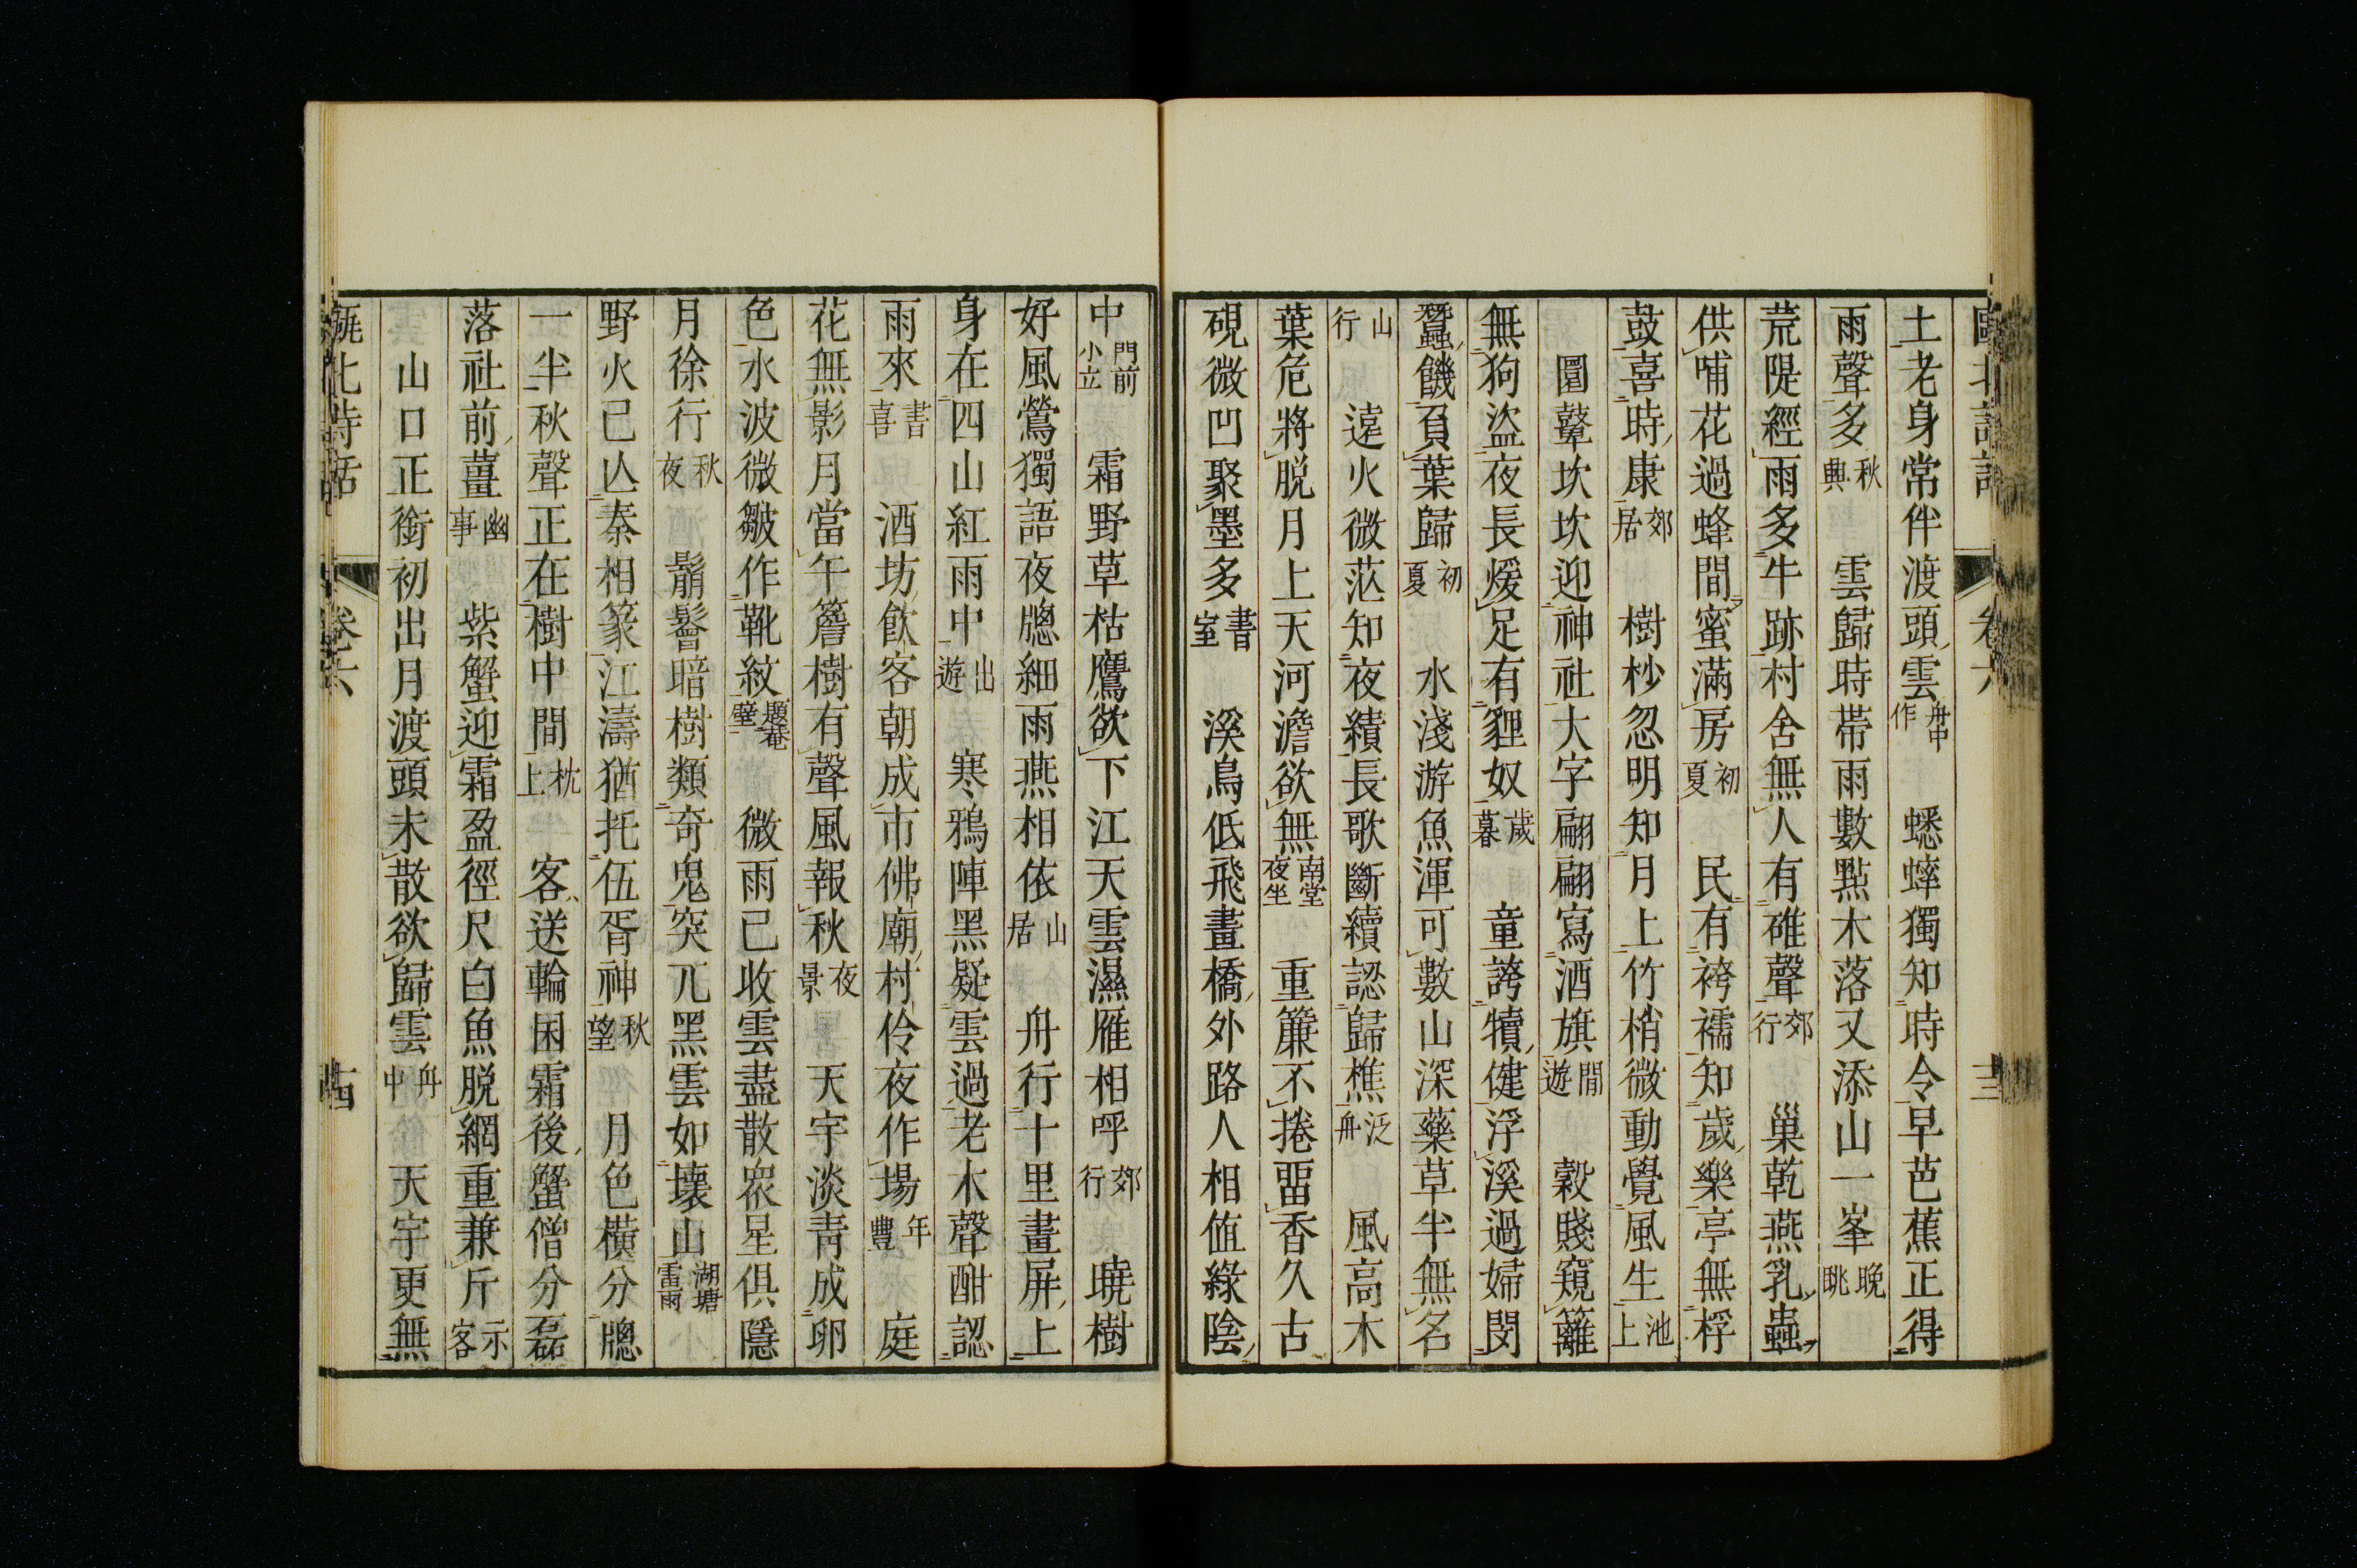 土老身常伴渡頭雲舟中作　蟋蟀獨知時令早芭蕉正得
雨聲多秋興　雲歸時帯雨數點木落又添山一峯晚眺
荒隄經雨多牛跡村舍無人有碓聲郊行　巢乾燕乳蟲
供哺花過蜂閒蜜滿房初夏　民有袴襦知歲樂亭無桴
鼓喜時康郊居　樹杪忽明知月上竹梢微動覺風生池上
圍鼙坎坎迎神社大字翩翩寫酒旗閒遊　穀賤窺籬
無狗盜夜長煖足有貍奴歲暮　童誇犢健浮溪過婦閔
蠶饑負葉歸初夏　水淺游魚渾可數山深藥草半無名
山行　遠火微茫知夜績長歌斷續認歸樵泛舟　風高木
葉危將脱月上天河澹欲無南堂夜坐　重簾不捲畱香久古
硯微凹聚墨多書室　溪鳥低飛畫橋外路人相值綠陰
卷六
中門前小立　霜野草枯鷹欲下江天雲濕雁相呼郊行　曉樹
好風鶯獨語夜牕細雨燕相依山居　舟行十里畫屏上
身在四山紅雨中出遊　寒鴉陣黑疑雲過老木聲酣認
雨來書喜　酒坊飲客朝成市佛廟村伶夜作場年豐　庭
花無影月當午簷樹有聲風報秋夜景　天宇淡靑成卵
色水波微皺作靴紋題菴壁　微雨已收雲盡散衆星俱隱
月徐行秋夜　鬅鬙暗樹類奇鬼突兀黑雲如壞山湖塘雷雨
野火已亾秦相篆江濤猶托伍胥神秋望　月色橫分牕
一半秋聲正在樹中間枕上　客送輪囷霜後蟹僧分磊
落社前薑幽事　紫蟹迎霜盈徑尺白魚脱網重兼斤示客
山口正銜初出月渡頭未散欲歸雲舟中　天宇更無
甌北詩話
卷六
十四